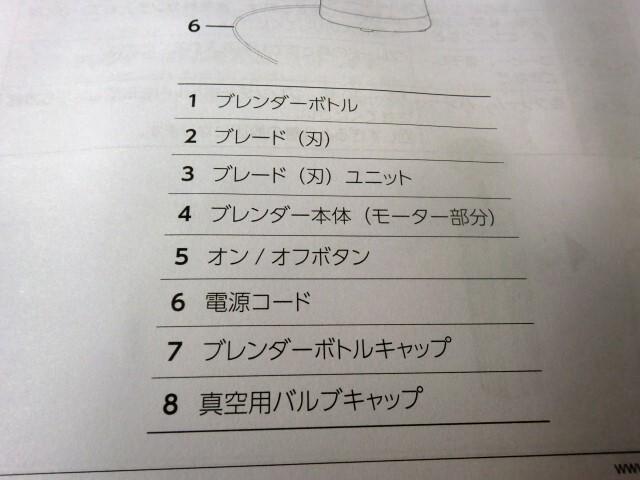 6
1 ブレンダーボトル
2 ブレード（刃）
3 ブレード（刃）ユニット
4 ブレンダー本体（モーター部分）
5 オン / オフボタン
6 電源コード
7 ブレンダーボトルキャップ
8 真空用バルブキャップ
www